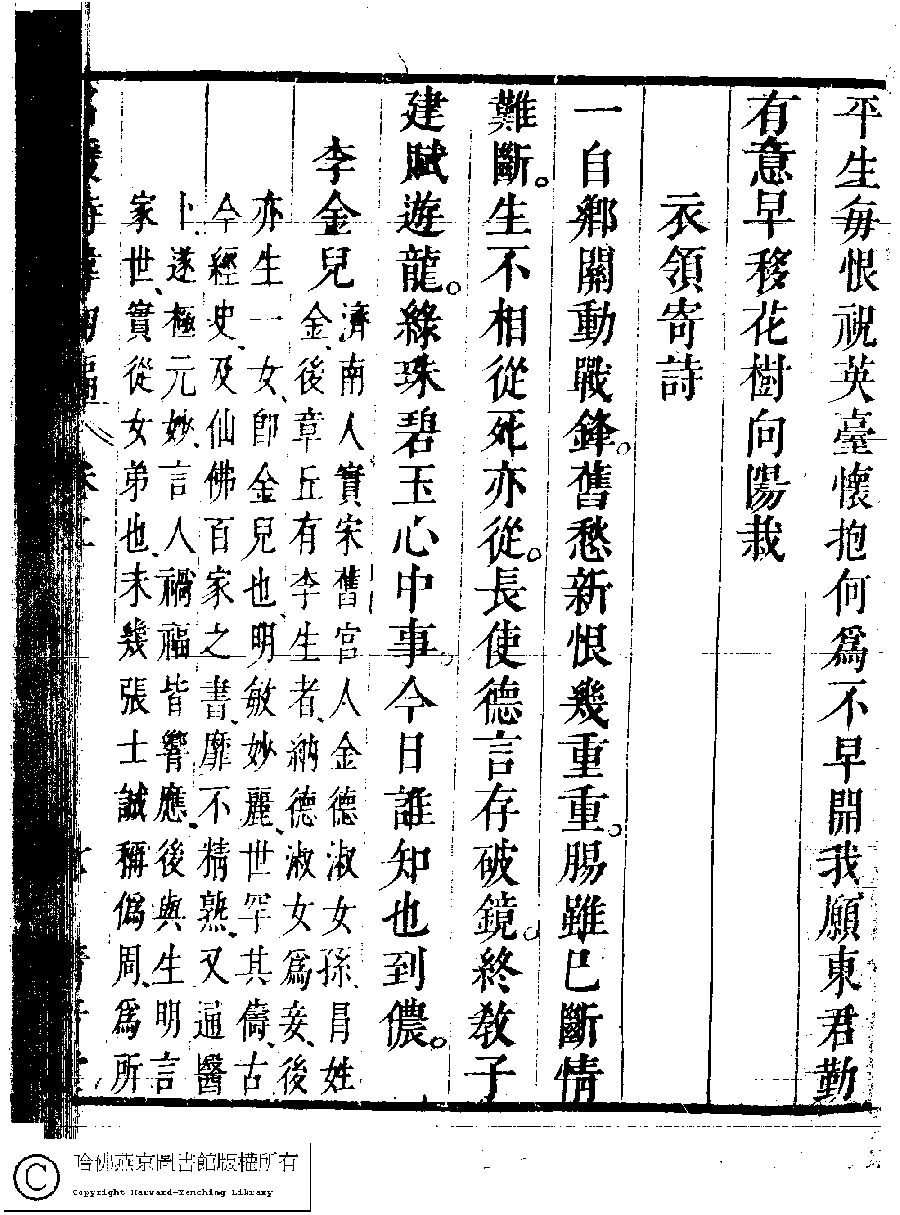 平生每恨祝英臺懷抱何爲不早開我願東君勤
有意早移花樹向陽栽
衣領寄詩
一自鄕關動戰鋒。舊愁新恨幾重重。腸雖已斷情
難斷。生不相從死亦從。長使德言存破鏡。終教子
建賦遊龍。綠珠碧玉心中事。今日誰知也到儂。
李金兒
濟南人實宋舊宮人金德淑女孫、冐姓
金、後章丘有李生者、納德淑女爲妾、後
亦生一女、卽金兒也、明敏妙麗、世罕其儔、古
今經史、及仙佛百家之書、靡不精熟、又通醫
卜、遂極元妙、言人禍福皆響應、後與生明言
家世、實從女弟也、未幾張士誠稱僞周、爲所
哈佛燕京圖書館版權所有
Copyright Harvard-Yenching Library